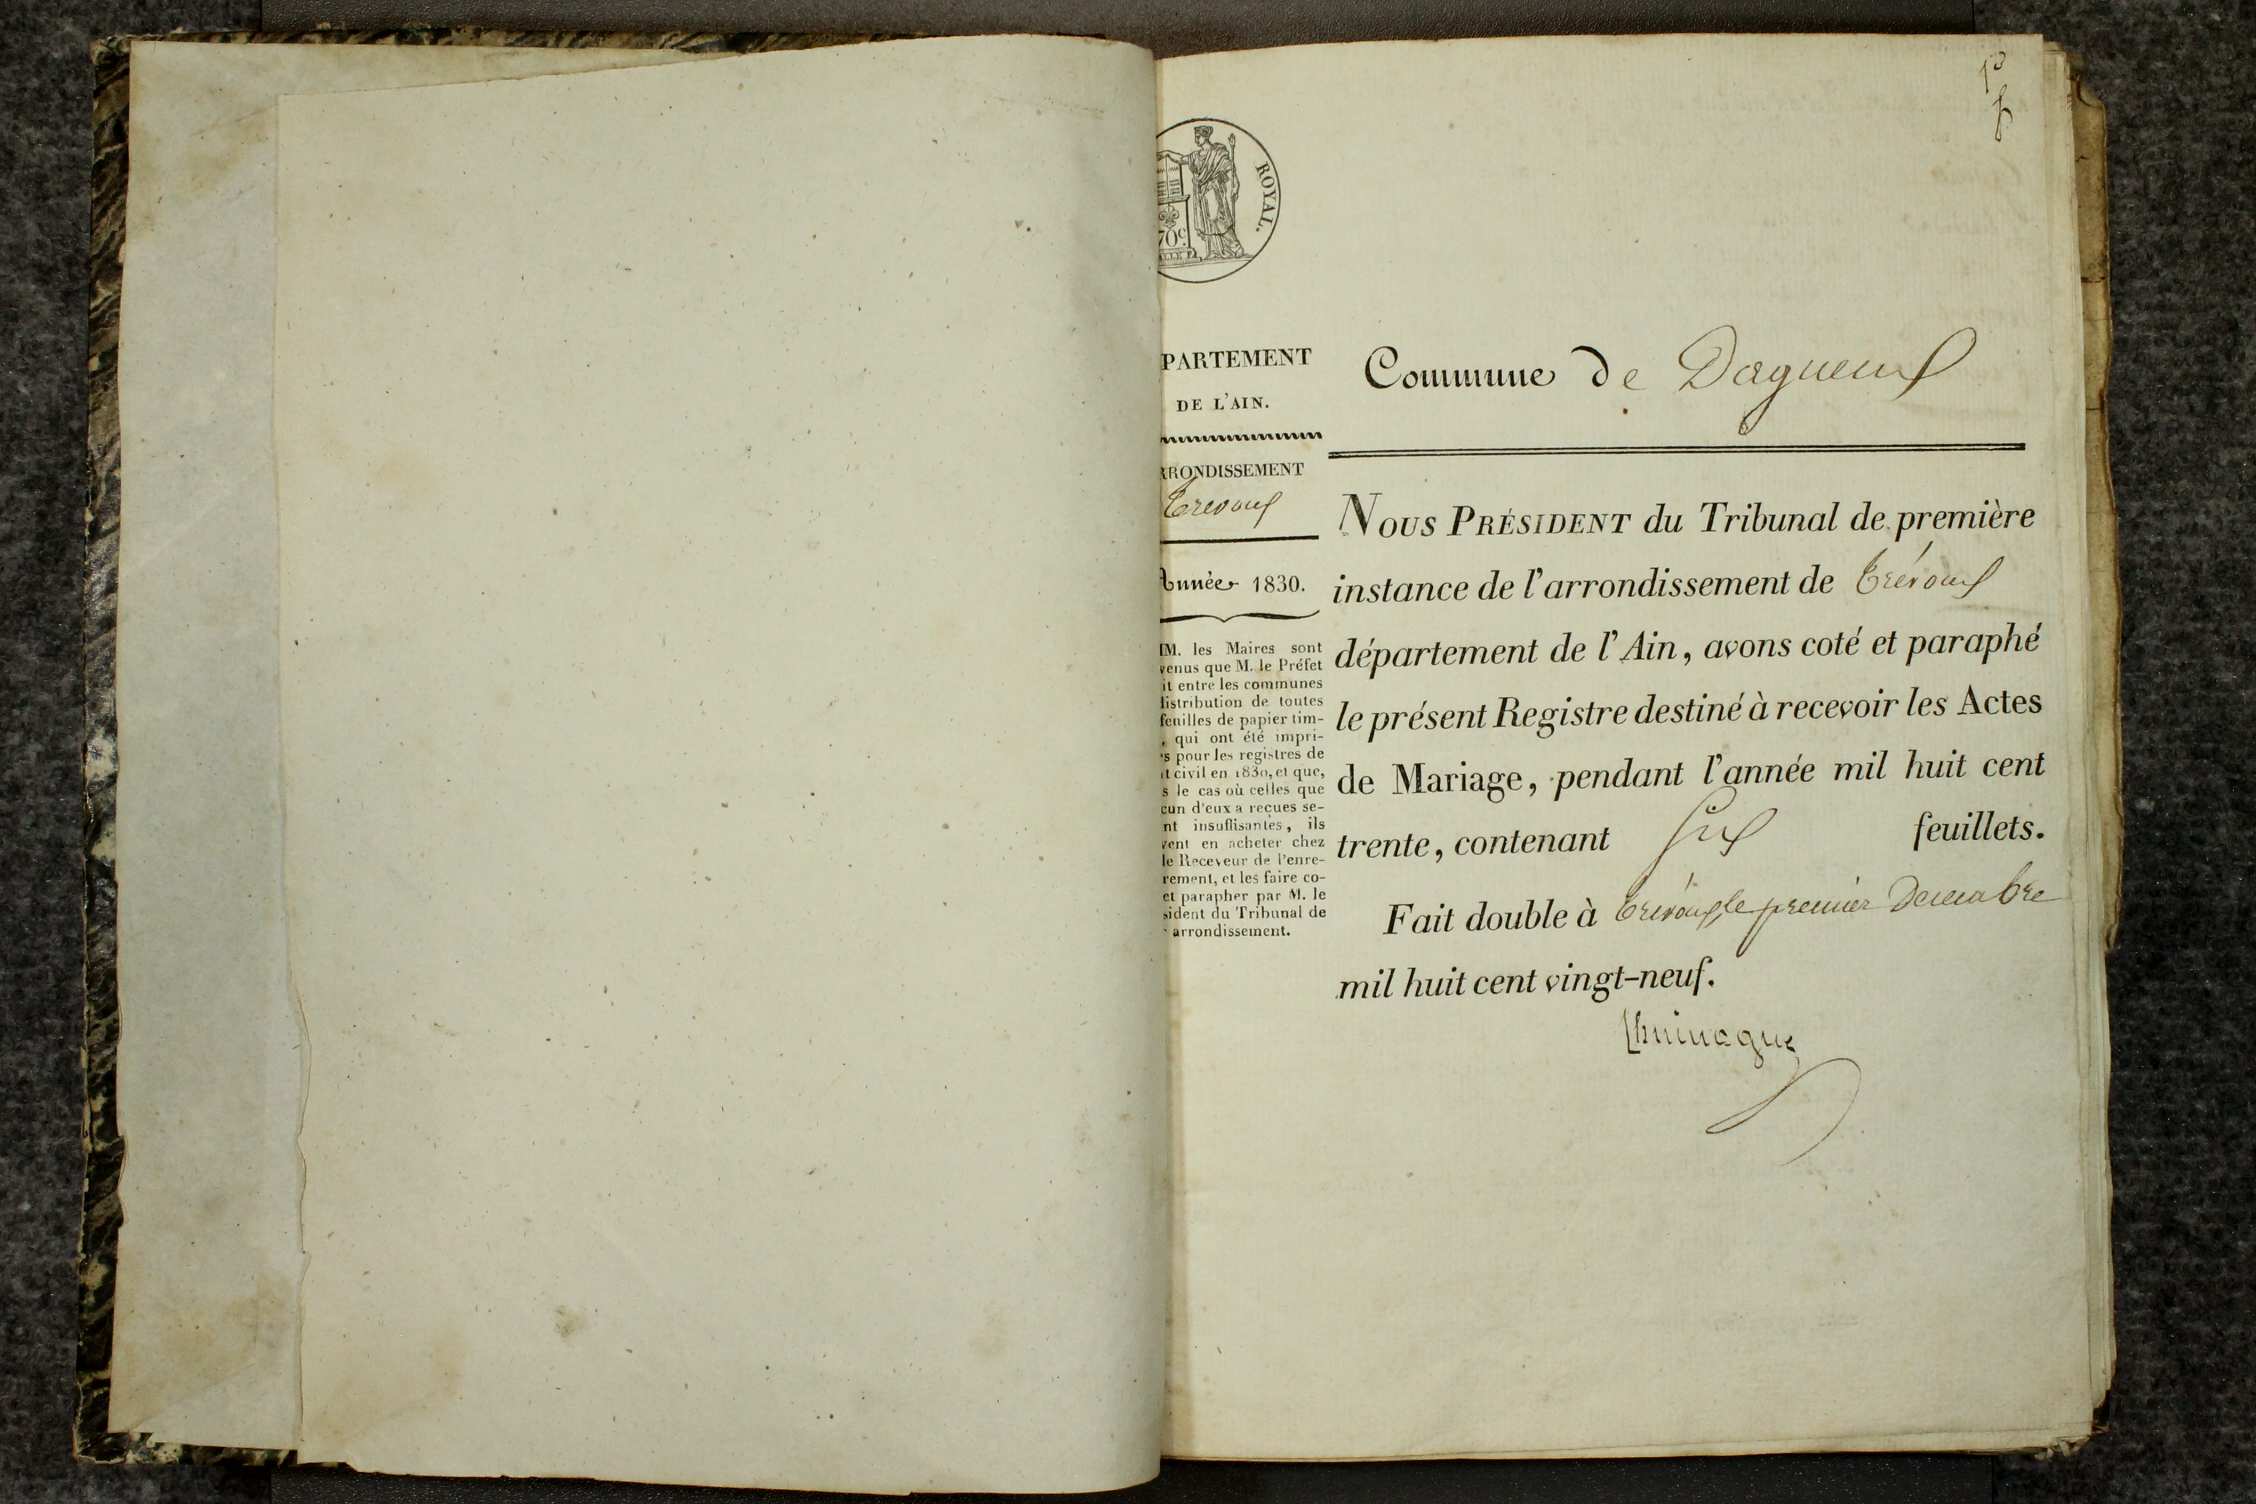 ROYAL.
70c.
PARTEMENT
DE L'AIN.
RRONDISSEMENT
Trevoux
Année 1830.
M. les Maires sont
venus que M. le Préfet
it entre les communes
distribution de toutes
feuilles de papier tim-
, qui ont été impri-
s pour les registres de
t civil en 1830, et que,
s le cas où celles que
cun d'eux a reçues se-
nt insuffisantes, ils
vent en acheter chez
le Receveur de l'enre-
rement, et les faire co-
et parapher par M. le
sident du Tribunal de
arrondissement.
Commune de Dagneux
NOUS PRÉSIDENT du Tribunal de première
instance de l'arrondissement de Trévoux
département de l'Ain, avons coté et paraphé
le présent Registre destiné à recevoir les Actes
de Mariage, pendant l'année mil huit cent
trente, contenant Six feuillets.
Fait double à Trévoux, le premier Decembre
mil huit cent vingt-neuf.